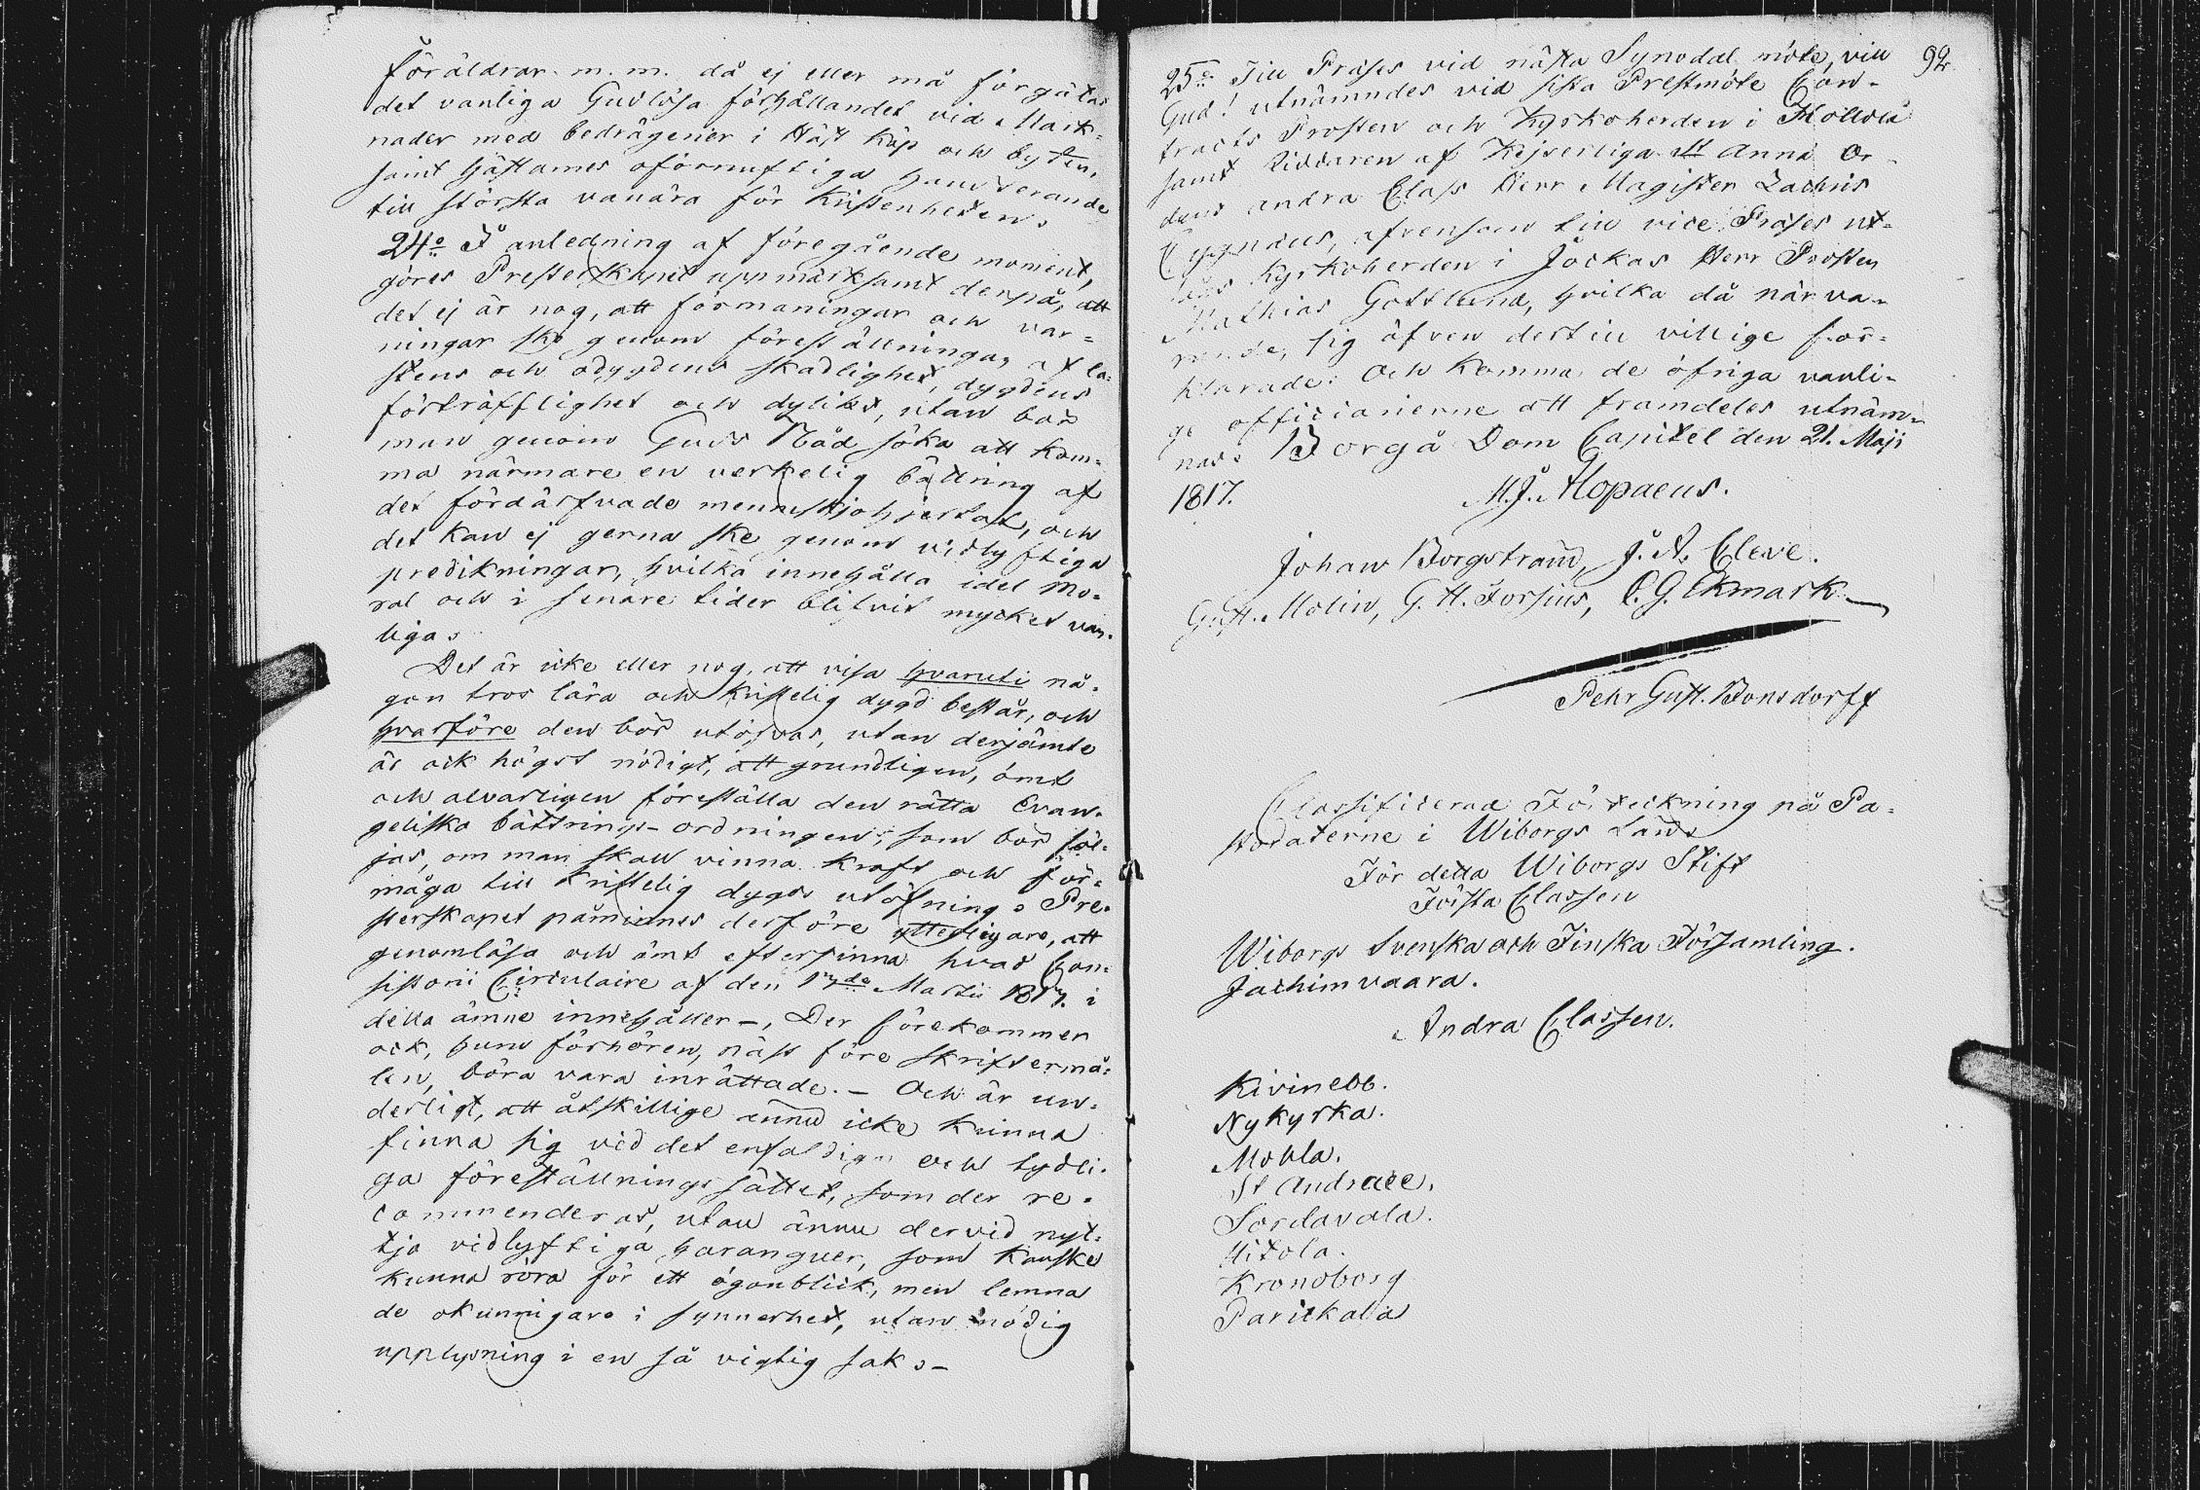 Föräldrar m. m. då ej eller må förgätas
det vanliga Gudlösa förhållandet vid Mark-
nader med bedrägerier i Häst köp och byten,
samt hästarnes oförnuftiga hanterande
till största vanära för Kristenheten.
24o I anledning af föregående moment,
göres Presterskapet uppmärksamt derpå, att
det ej är nog, att förmaningar och var-
ningar ske genom föreställningar af la-
stens och odygdens skadlighet, dygdens
förträfflighet och dylikt, utan bör
man genom Guds Nåd söka att kom-
ma närmare en verkelig bättring af
det fördärfvade menniskjohjertat, och
det kan ej gerna ske genom vidlyftiga
predikningar, hvilka innehålla idel Mo-
ral och i senare tider blifvit mycket van-
liga.
Det är icke eller nog, att visa hvaruti nå-
gon tros lära och kristelig dygd består, och
hvarföre den bör utöfvas, utan derjämte
är ock högst nödigt, att grundligen, ömt
och alvarligen föreställa den rätta Evan-
geliska bättrings-ordningen, som bör föl-
jas, om man skall vinna kraft och för-
måga till kristelig dygds utöfning. Pre-
sterskapet påminnes derföre ytterligare, att
genomläsa och ömt eftersinna hvad Con-
sistorii Circulaire af den 17de Martii 1817. i
detta ämne innehåller -, Der förekommer
ock, huru förhören, näst före skriftermå-
len, böra vara inrättade. - Och är un-
derligt, att åtskillige ännu icke kunna
finna sig vid det enfaldiga och tydli-
ga föreställningssättet, som der re-
commenderas, utan ännu dervid nyt-
tja vidlyftiga haranguer, som kanske
kunna röra för ett ögonblick, men lemna
de okunnigare i synnerhet, utan nödig
upplysning i en så vigtig sak. -
92
25o Till Præses vid nästa Synodal möte, vill
Gud! utnämndes vid sista Prestmöte Con-
tracts Prosten och Kyrkoherden i Hollola
samt Riddaren af Kejserliga St Anna Or-
dens andra Class Herr Magister Zachris
Cygnæus, äfvensom till vice Præses ut-
sågs Kyrkoherden i Jockas Herr Prosten
Mathias Gottlund, hvilka då närva-
rande, sig äfven dertill villige för-
klarade. Och komma de öfriga vanli-
ge officianterne att framdeles utnäm-
nas. Borgå Dom Capitel den 21. Maji
1817. M. J. Alopaeus.
Johan Borgström, J. A. Cleve.
Gust. Molin, G. H. Forsius, C. G. Ekmark
Pehr Gust. Bonsdorff
Classificerad Förteckning på Pa-
storaterne i Wiborgs Län.
För detta Wiborgs Stift
Första Classen
Wiborgs Svenska och Finska Församling.
Jachimvaara.
Andra Classen.
Kivinebb.
Nykyrka.
Mohla.
St Andraee.
Sordavala.
Hitola.
Kronoborg
Parikkala